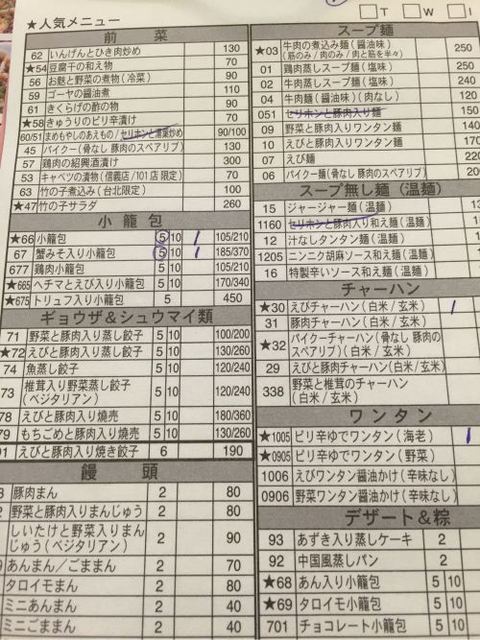 T W I
★人気メニュー
前菜
62 いんげんとひき肉炒め 130
★54 豆腐干の和え物 70
56 お麩と野菜の煮物(冷菜) 90
59 ゴーヤの醤油煮 110
61 きくらげの酢の物 90
★58 きゅうりのピリ辛漬け 70
60/51 まめもやしのあえもの/セリホンと湯葉炒め 90/100
45 パイクー(骨なし 豚肉のスペアリブ) 130
57 鶏肉の紹興酒漬け 300
53 キャベツの漬物(信義店/101店 限定) 70
63 竹の子煮込み(台北限定) 100
★47 竹の子サラダ 260
小籠包
★66 小籠包 5 10 1 105/210
67 蟹みそ入り小籠包 5 10 1 185/370
677 鶏肉小籠包 5 10 105/210
★665 ヘチマとえび入り小籠包 5 10 170/340
★675 トリュフ入り小籠包 5 450
ギョウザ&シュウマイ類
71 野菜と豚肉入り蒸し餃子 5 10 100/200
★72 えびと豚肉入り蒸し餃子 5 10 130/260
74 魚蒸し餃子 5 10 120/240
73 椎茸入り野菜蒸し餃子(ベジタリアン) 5 10 120/240
78 えびと豚肉入り焼売 5 10 180/360
79 もちごめと豚肉入り焼売 5 10 130/260
91 えびと豚肉入り焼き餃子 6 190
饅頭
豚肉まん 2 80
野菜と豚肉入りまんじゅう 2 80
しいたけと野菜入りまんじゅう(ベジタリアン) 2 90
あんまん/ごままん 2 70
タロイモまん 2 80
ミニあんまん 2 40
ミニごままん 2 40
スープ麺
★03 牛肉の煮込み麺(醤油味)(筋のみ/肉のみ/肉と筋を半々) 250
01 鶏肉蒸しスープ麺(塩味) 250
02 牛肉蒸しスープ麺(塩味) 240
04 牛肉麺(醤油味)(肉なし) 120
051 セリホンと豚肉入り麺 150
09 野菜と豚肉入りワンタン麺 140
10 えびと豚肉入りワンタン麺 170
07 えび麺 220
06 パイクー麺(骨なし 豚肉のスペアリブ) 200
スープ無し麺(温麺)
15 ジャージャー麺(温麺)
1160 セリホンと豚肉入り和え麺(温麺)
12 汁なしタンタン麺(温麺)
1205 ニンニク胡麻ソース和え麺(温麺)
16 特製辛いソース和え麺(温麺)
チャーハン
★30 えびチャーハン(白米/玄米) 1
31 豚肉チャーハン(白米/玄米)
★32 パイクーチャーハン(骨なし 豚肉のスペアリブ)(白米/玄米)
29 えびと豚肉チャーハン(白米/玄米)
338 野菜と椎茸のチャーハン(白米/玄米)
ワンタン
★1005 ピリ辛ゆでワンタン(海老) 1
★0905 ピリ辛ゆでワンタン(野菜)
1006 えびワンタン醤油かけ(辛味なし)
0906 野菜ワンタン醤油かけ(辛味なし)
デザート&粽
93 あずき入り蒸しケーキ 2
92 中国風蒸しパン 2
★68 あん入り小籠包 5 10
★69 タロイモ小籠包 5 10
701 チョコレート小籠包 5 10